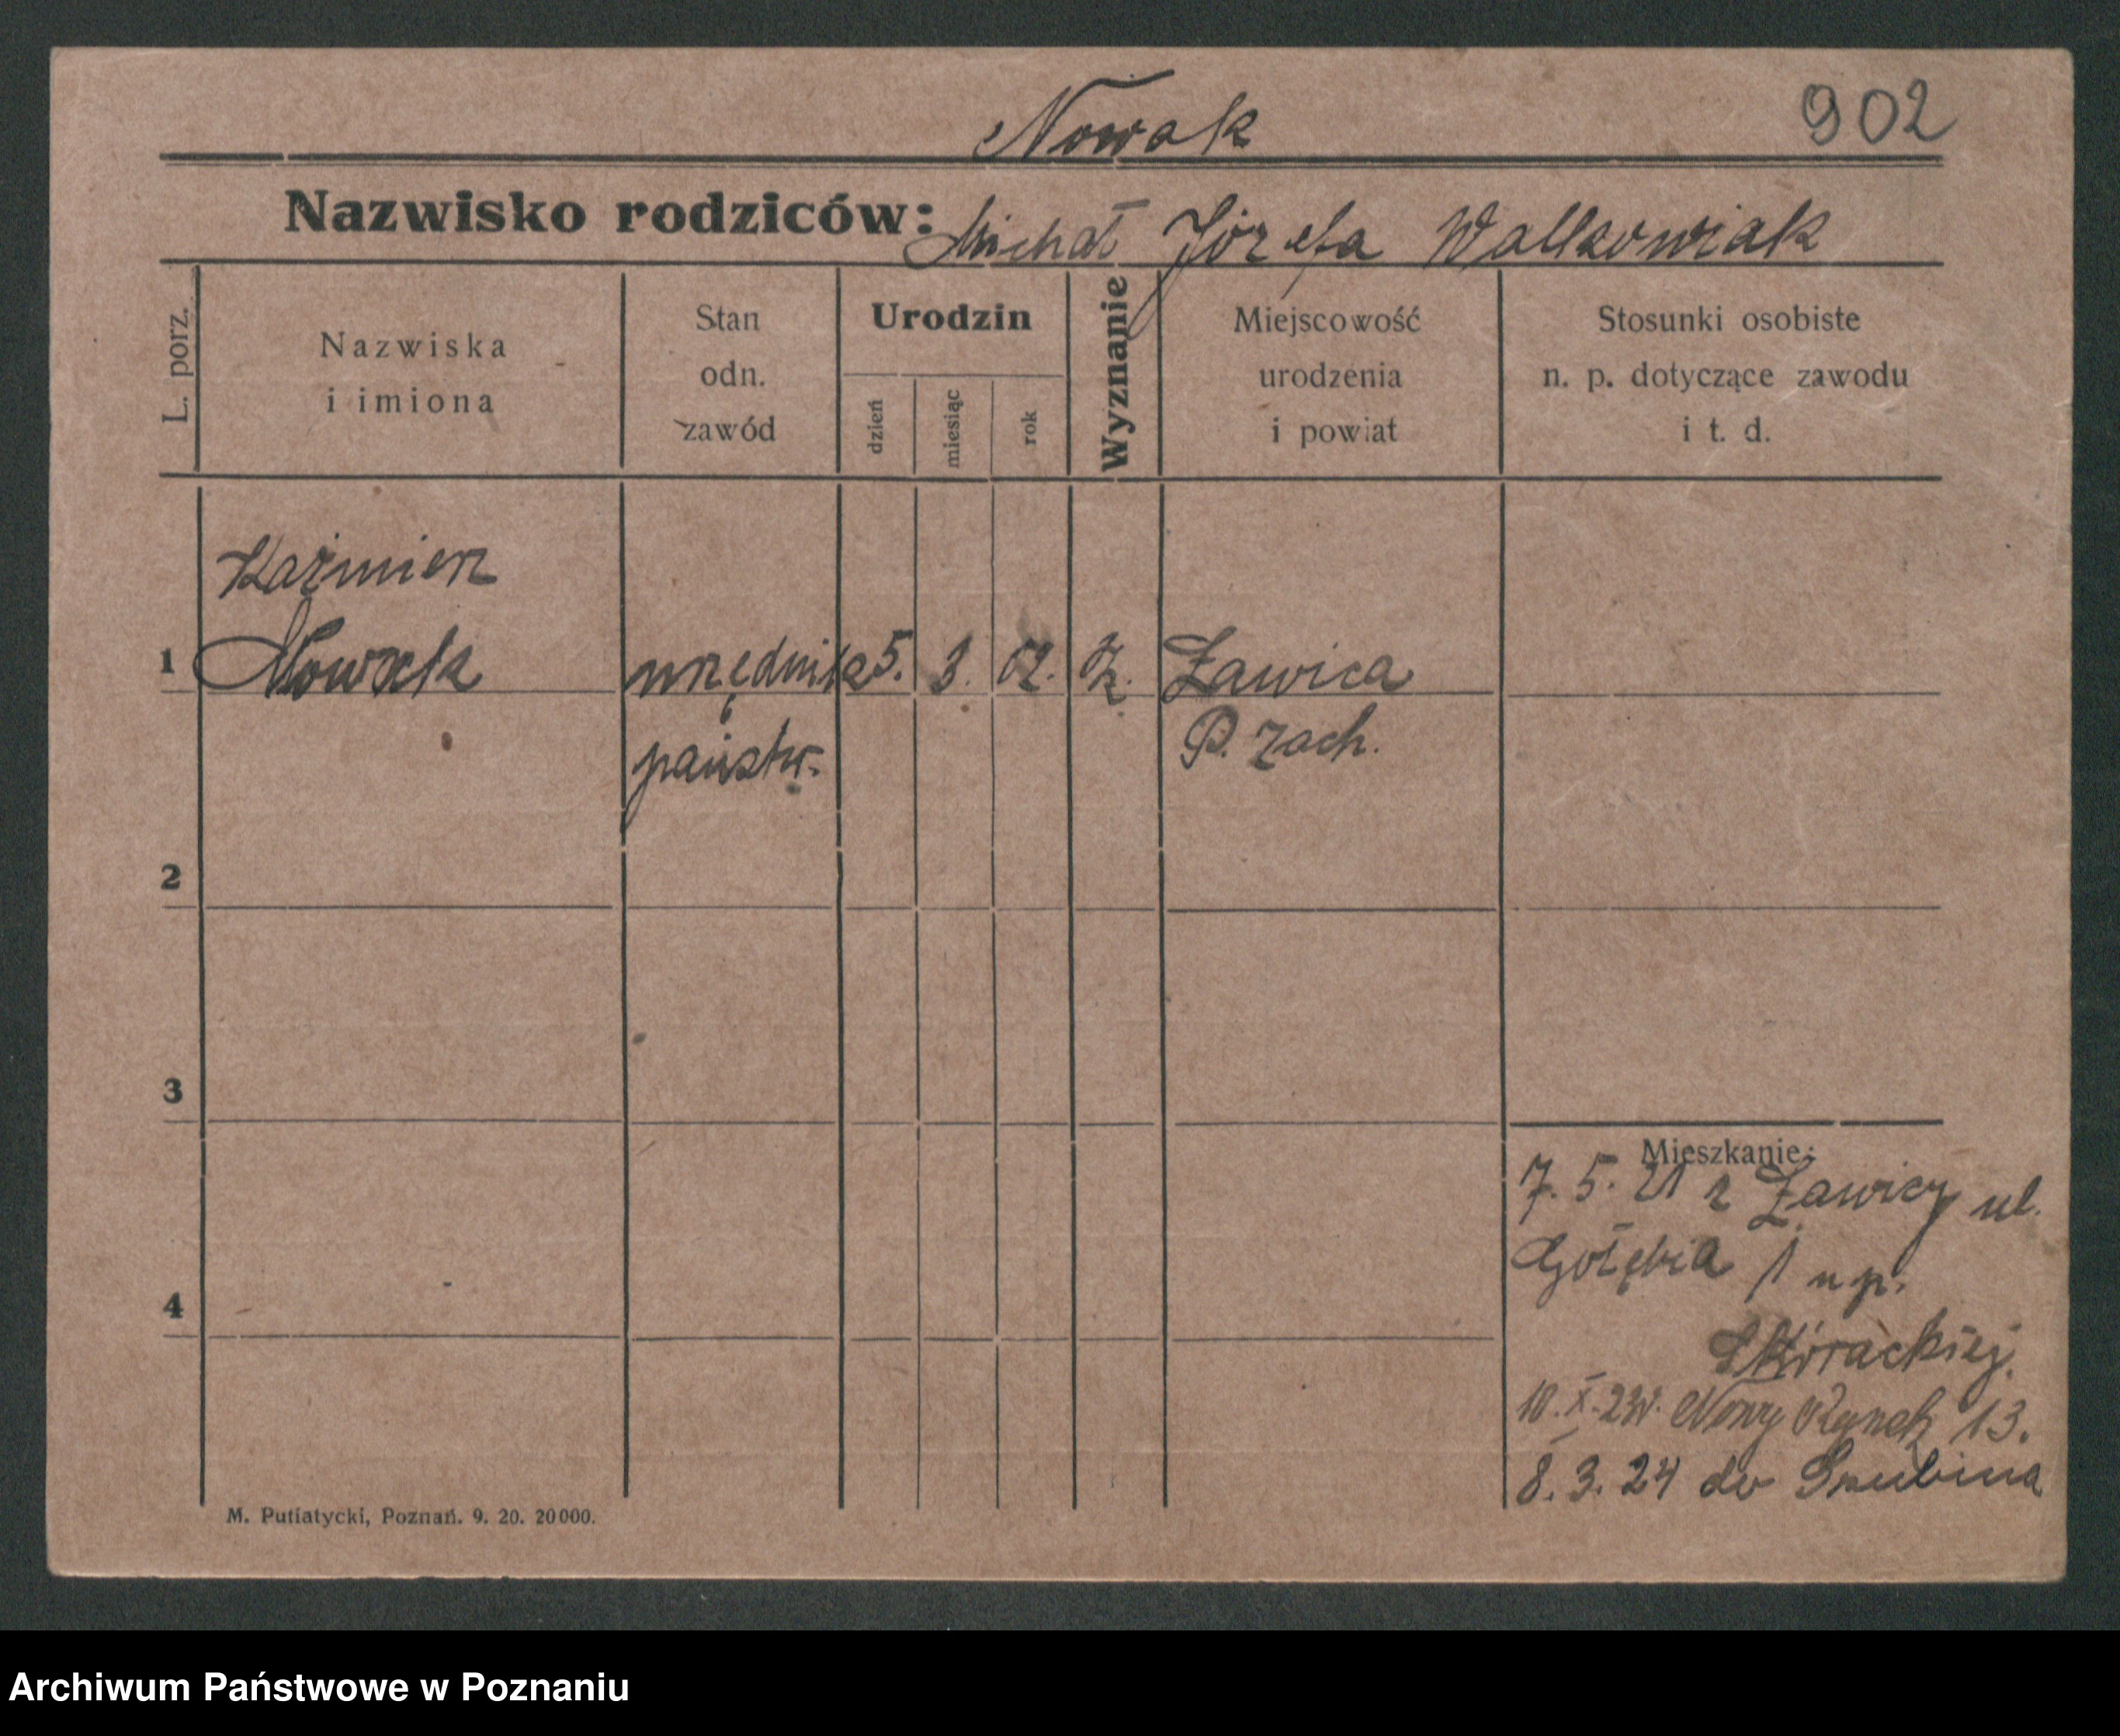 Nowak
902
Nazwisko rodziców: Michał Józefa Walkowiak
L. porz.
Nazwiska
i imiona
Stan
odn.
zawód
Urodzin
dzień
miesiąc
rok
Wyznanie
Miejscowość
urodzenia
i powiat
Stosunki osobiste
n. p. dotyczące zawodu
i t. d.
Kaźmierz
1 Nowak urzędnik 5. 3. 02. Ławica
państw. P. zach.
2
3
4
Mieszkanie:
7. 5. 21 z Ławicy ul.
Gołębia 1 u p.
Skórackiej.
10. X. 23 Nowy Rynek 13.
8. 3. 24 do Szubina
M. Putiatycki, Poznań. 9. 20. 20000.
Archiwum Państwowe w Poznaniu